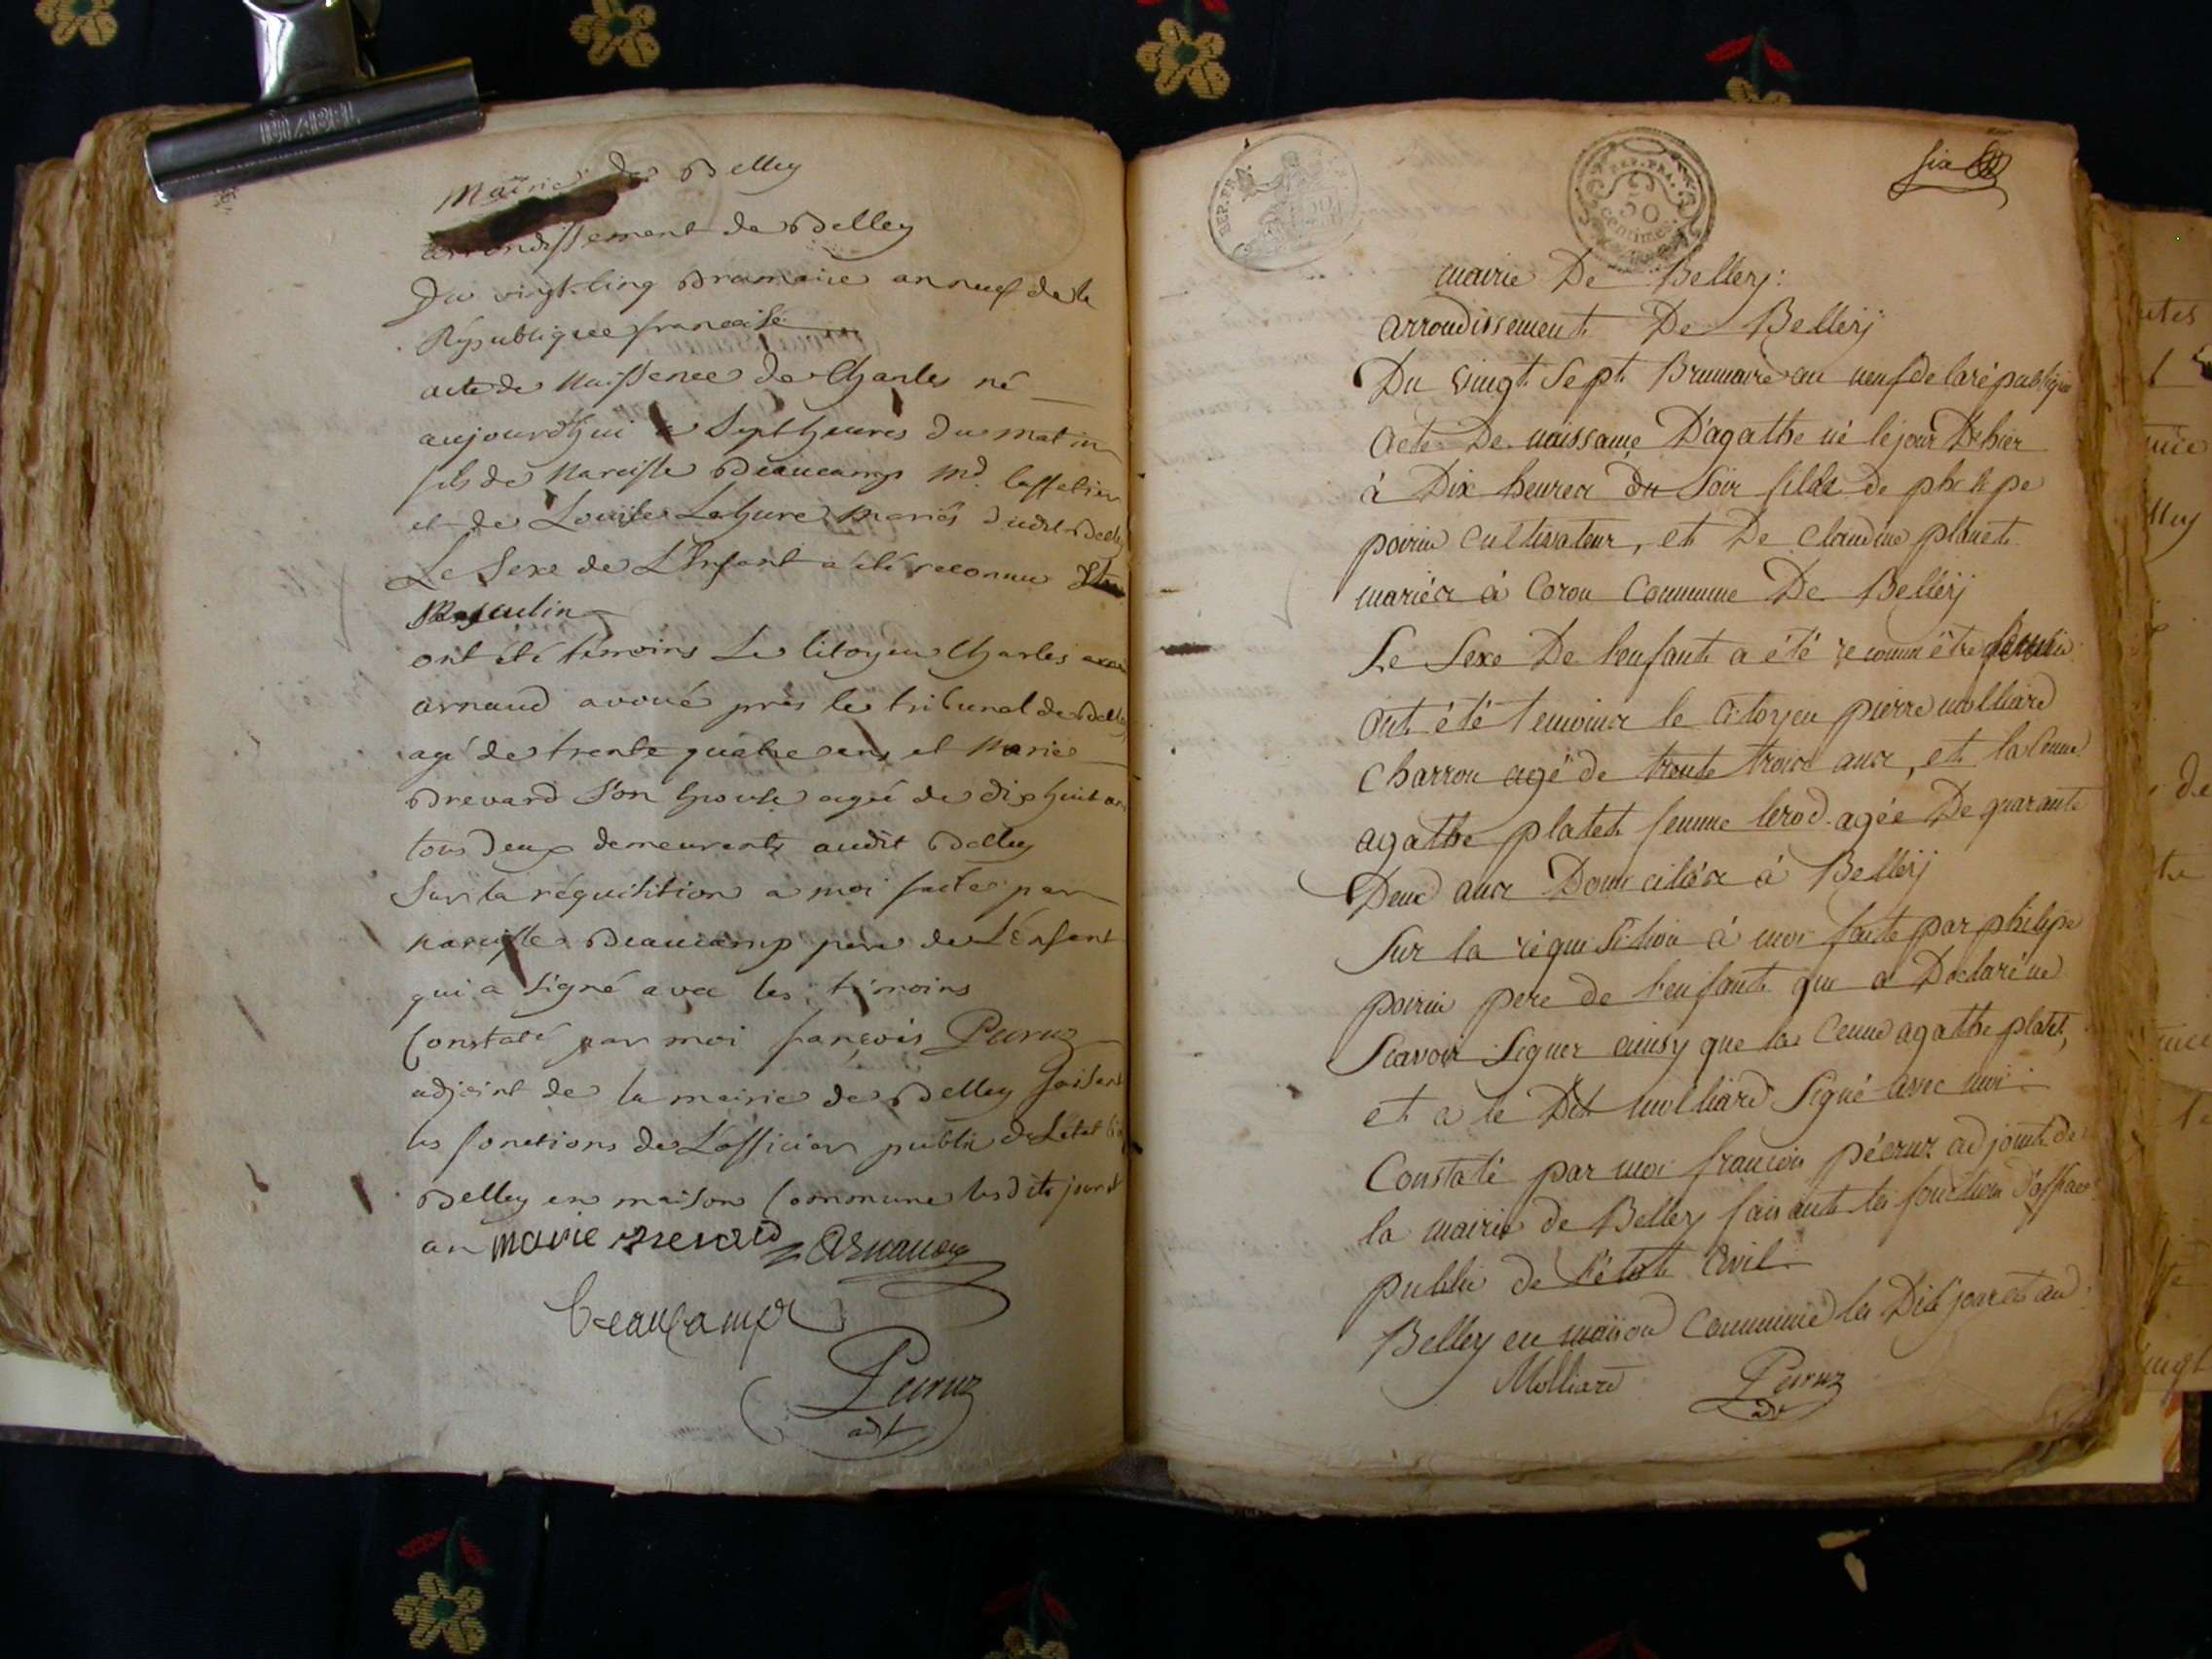 Mairie de Belley
arrondissement de Belley
Du vingt-cinq Brumaire an neuf de la
République française
acte de Naissence de Charles né
aujourd'hui a Sept heures du matin
fils de Narcisse Beaucamp Md.
et de Louise Lahure mariés dudit Belley
Le Sexe de L'Enfant a été reconnu
Masculin
ont été témoins Le Citoyen Charles
arnaud avoué près le tribunal de Belley
agé de trente quatre ans et Marie
Brevard Son Epouse agée de dix huit ans
tous Deux demeurants audit Belley
Sur la réquisition a moi faite par
Narcisse Beaucamp pere de L'Enfant
qui a Signé avec les témoins
Constaté par moi françois Peeruz
adjoint de la mairie de Belley faisant
les fonctions de L'officier public de L'état
Belley en maison Commune lesdits jour et
an marie Brevard Arnaud
beaucamp
Peeruz
adjt
REP. FRA.
REP. FRA.
50
centimes
six
mairie De Belleÿ:
arrondissement De Belleÿ
Du vingt Sept Brumaire an neuf de la république
Acte De naissance D'agathe né le jour D'hier
à Dix heures du Soir fille de philipe
poirin cultivateur, et De Claudine planet
mariés à Coron Commune De Belléÿ
Le Sexe De l'enfant a été reconnu être feminin
Ont été temoins le Citoyen pierre molliard
Charron agé de trente trois ans, et la Cenne
agathe platet femme agée De quarante
Deux ans Domiciliés à Belleÿ
Sur la réquisition à moi faite par philipe
poirin pere de l'enfant qui a Déclaré ne
Scavoir Signer ainsy que la Cenne agathe platet,
et a le Dit molliard Signé avec moi
Constaté par moi françois péeruz adjoint de
la mairie de Belley faisant les fonction d'officier
public de l'état Civil
Belley en maison Commune les Dit jour et an
Molliard Peeruz
adjt